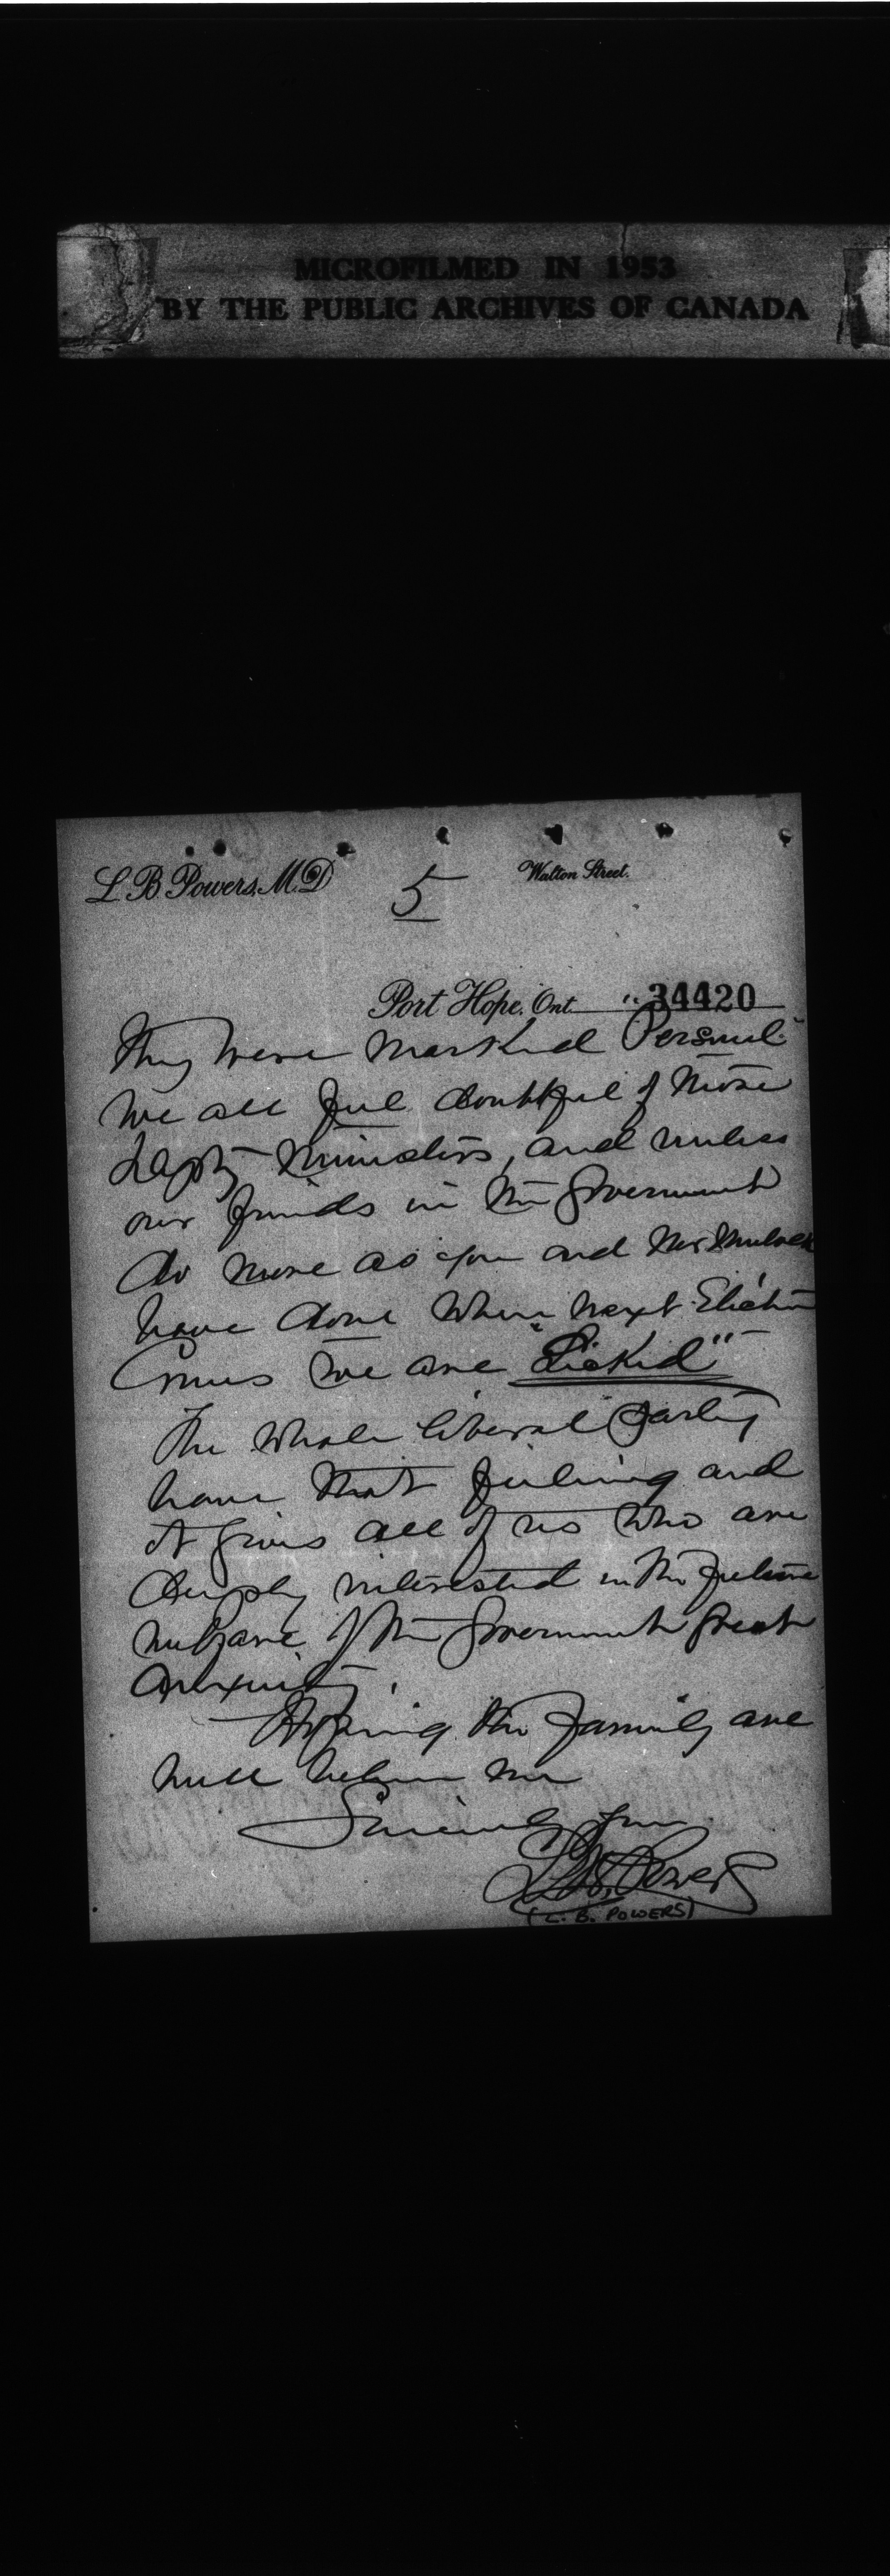 MICROFILMED IN 1953
BY THE PUBLIC ARCHIVES OF CANADA
L. B. Powers, M.D.
Walton Street.
5
Port Hope, Ont.
34420
They were marked Personal.
We all feel doubtful of those
Deputy Ministers, and unless
our friends in the Government
do more as you and Mr Mulock
have done when next Election
Comes we are "Licked"
The whole liberal party
have that feeling and
it gives all of us who are
deeply interested in the future
welfare of the Government great
anxiety.
Hoping the family are
well believe me
Sincerely yours
L. B. Powers
(L. B. POWERS)